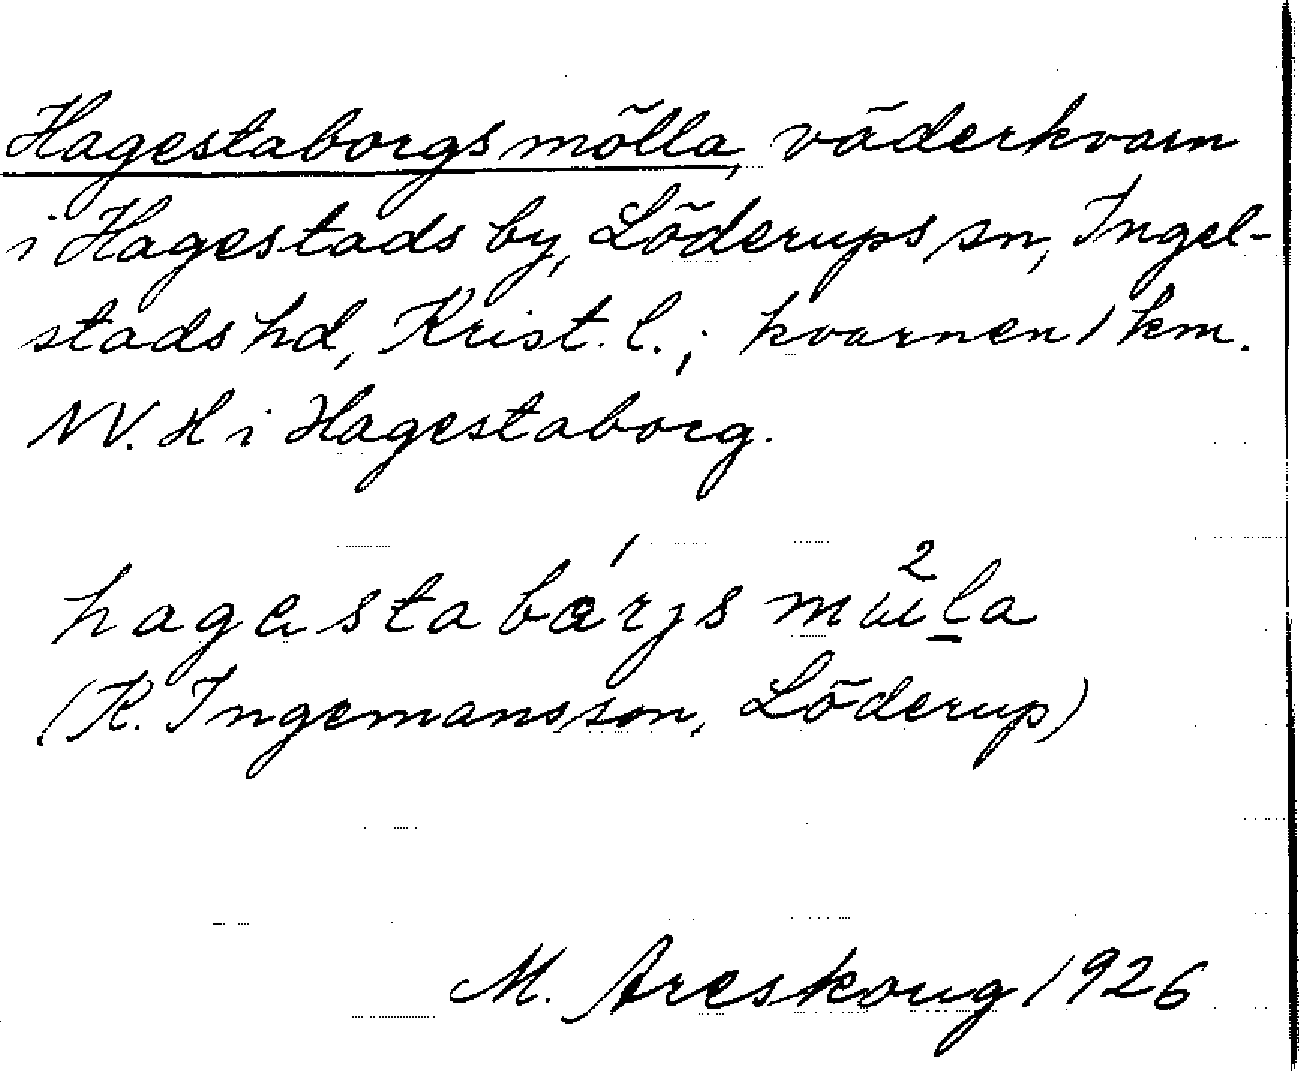 Hagestaborgs mölla, väderkvarn
i Hagestads by, Löderups sn, Ingel-
stads hd, Krist. l.; kvarnen 1 km.
NV. H i Hagestaborg.
(K. Ingemansson, Löderup)
M. Areskoug 1926